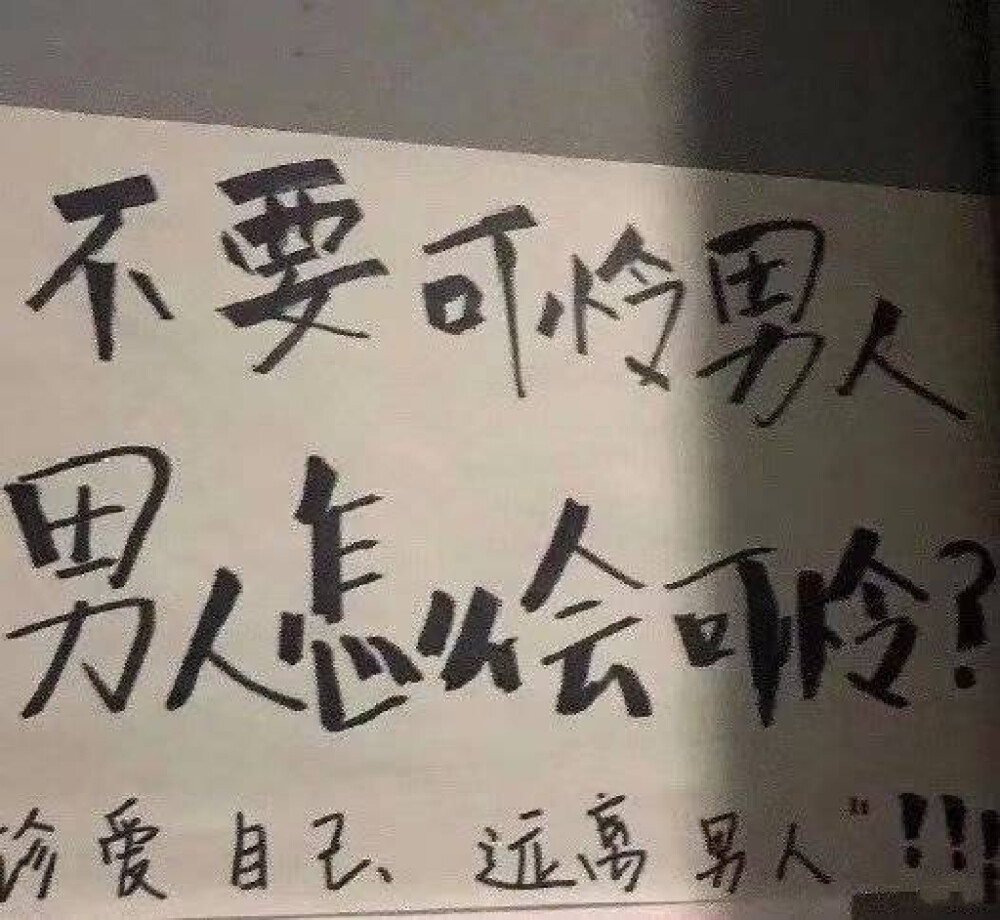 不要可怜男人
男人怎么会可怜?
珍爱自己、远离男人"!!!